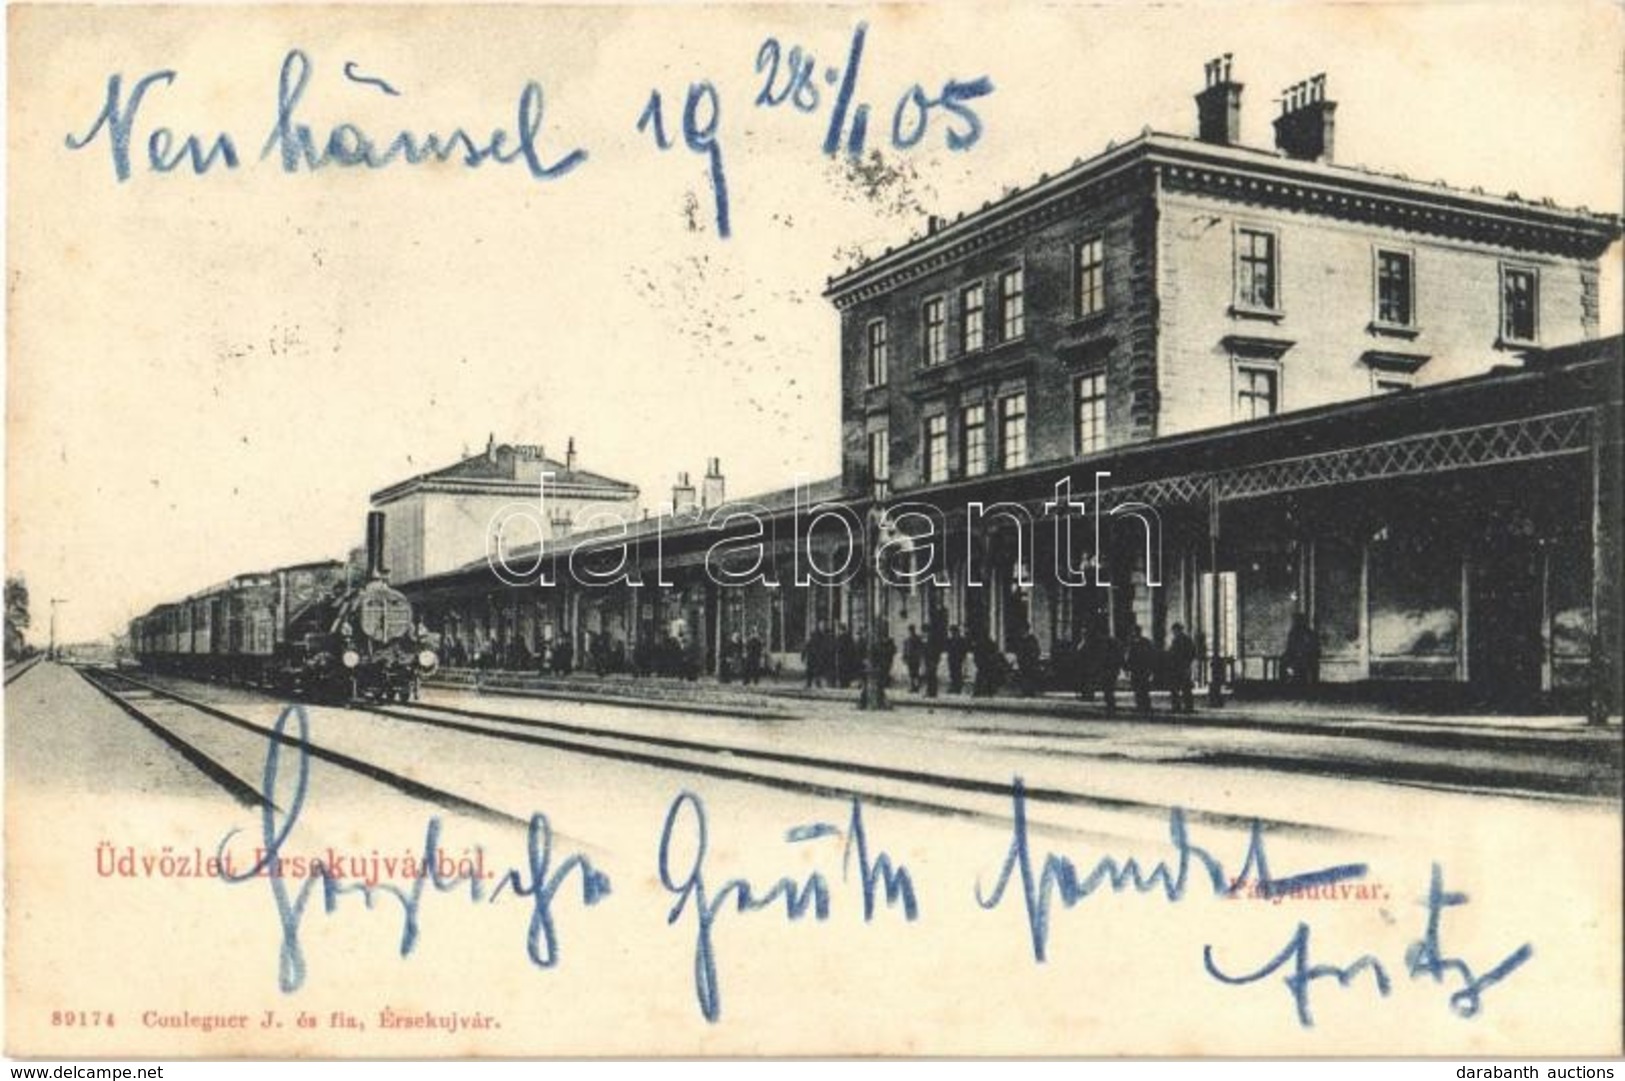 Neuhäusel 19 28./I 05
darabanth
Üdvözlet Érsekujvárból.
Herzliche Grüße sendet
Pályaudvar.
Fritz
89174 Conlegner J. és fia, Érsekujvár.
www.delcampe.net
darabanth auctions